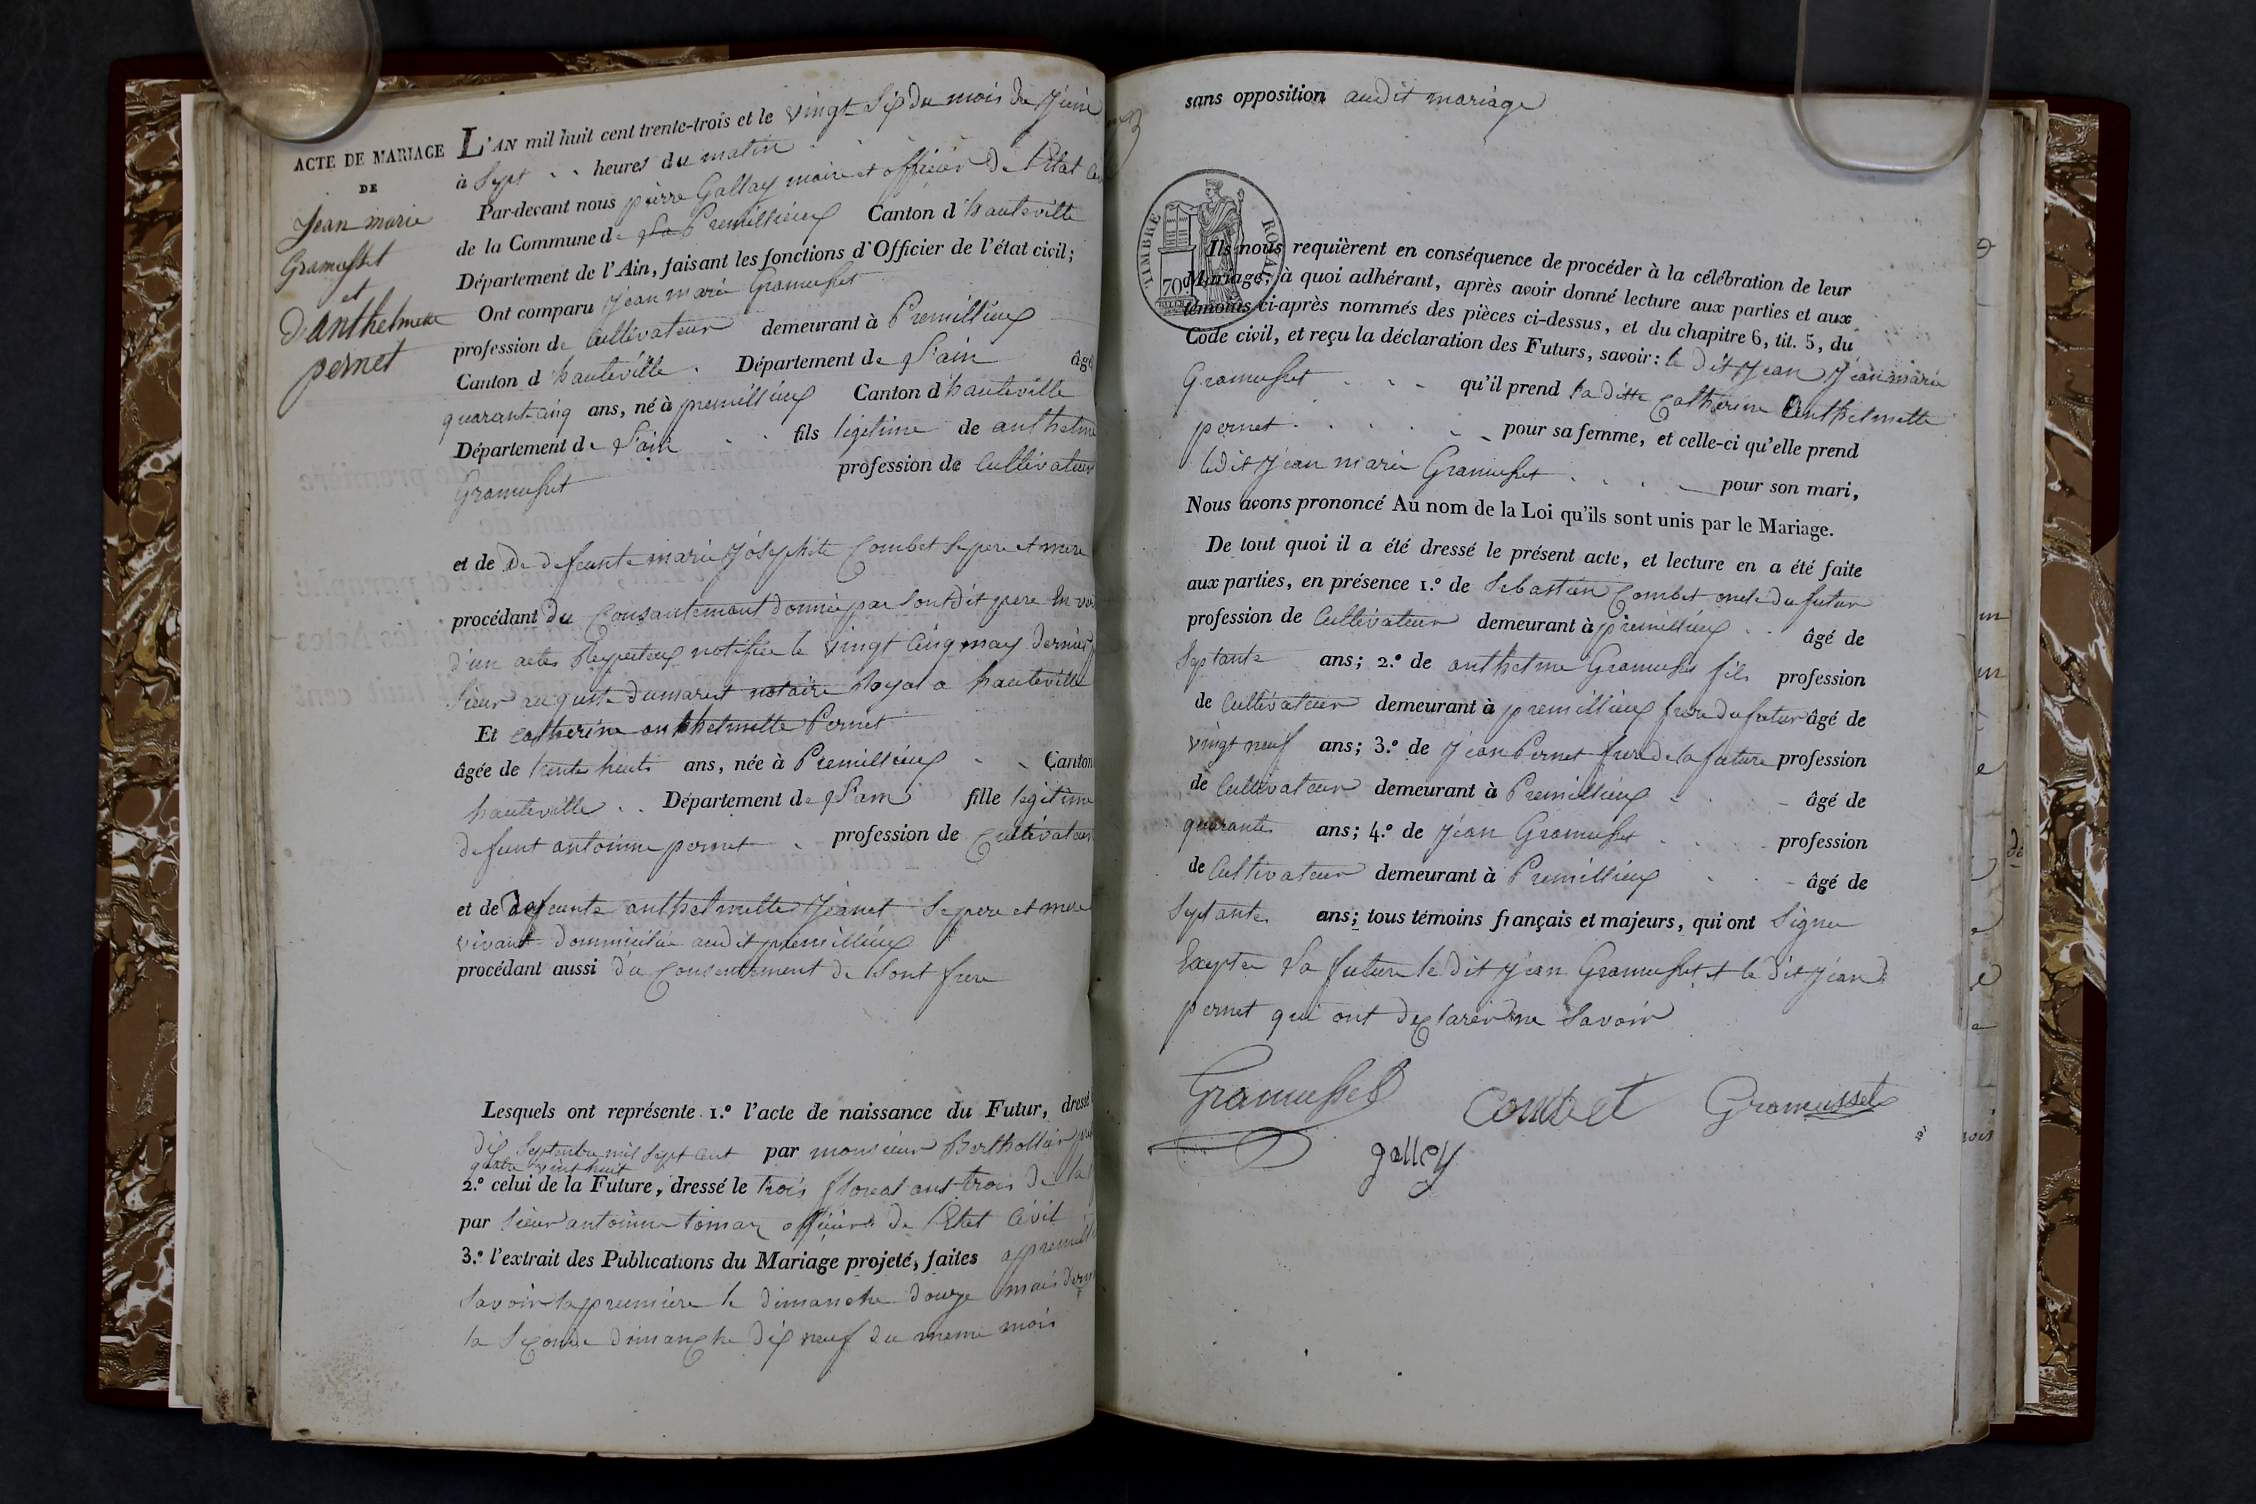 ACTE DE MARIAGE
DE
Jean marie
Gramusset
et
D'anthelmette
pernet
L'AN mil huit cent trente-trois et le vingt six du mois de Juin
à Sept heures du matin
Par-devant nous pierre Gallay maire et officier de l'Etat
de la Commune de Premillieux Canton d'hauteville
Département de l'Ain, faisant les fonctions d'Officier de l'état civil;
Ont comparu Jean marie Gramusset
profession de Cultivateur demeurant à Premillieux
Canton d'hauteville Département de L'ain âgé
quarante cinq ans, né à premillieux Canton d'hauteville
Département de L'ain fils légitime de anthelme
Gramusset profession de Cultivateur
et de De defeunte marie Josephite Combet Se pere et mere
procédant du Consantemant donnée par sont dit pere En
d'un actes Respecteux notifiée le vingt Cinq may dernier
Sieur auguste dumarest notaire Royal a hauteville
Et catherine anthelmette Pernet
âgée de trente huit ans, née à Premillieux Canton
hauteville Département de L'ain fille legitime
defunt antoinne pernet profession de Cultivateur
et de Defeunte anthelmette Jeanet Se pere et mere
vivant domicilie audit premillieux
procédant aussi du Consentement de Sont frere
Lesquels ont représenté 1.º l'acte de naissance du Futur, dressé
dix Septembre mil Sept Cent par monsieur Berthollier
quatre vint huit
2.º celui de la Future, dressé le trois floreal ant trois de la
par Sieur antoinne officier de l'Etat Civil
3.º l'extrait des Publications du Mariage projeté, faites
Savoir la premiere le dimanche douze mais
la Seconde dimanche dix neuf du meme mois
sans opposition audit mariage
TIMBRE ROYAL
70
Ils nous requièrent en conséquence de procéder à la célébration de leur
Mariage; à quoi adhérant, après avoir donné lecture aux parties et aux
témoins ci-après nommés des pièces ci-dessus, et du chapitre 6, tit. 5, du
Code civil, et reçu la déclaration des Futurs, savoir: le dit Jean Jean marie
Gramusset qu'il prend la ditte Catherine Anthelmette
pernet pour sa femme, et celle-ci qu'elle prend
le dit Jean marie Gramusset pour son mari,
Nous avons prononcé Au nom de la Loi qu'ils sont unis par le Mariage.
De tout quoi il a été dressé le présent acte, et lecture en a été faite
aux parties, en présence 1.º de Sebastien Combet oncle du futur
profession de Cultivateur demeurant à premillieux âgé de
Septante ans; 2.º de anthelme Gramusset fils profession
de Cultivateur demeurant à premillieux frere du futur âgé de
vingt neuf ans; 3.º de Jean Pernet frere de la future profession
de Cultivateur demeurant à Premillieux âgé de
quarante ans; 4.º de Jean Gramusset profession
de Cultivateur demeurant à Premillieux âgé de
Septante ans; tous témoins français et majeurs, qui ont Signer
Exepter La future le dit Jean Gramusset et le dit Jean
pernet qui ont declarer ne Savoir
Gramusset Combet Gramusset
galley